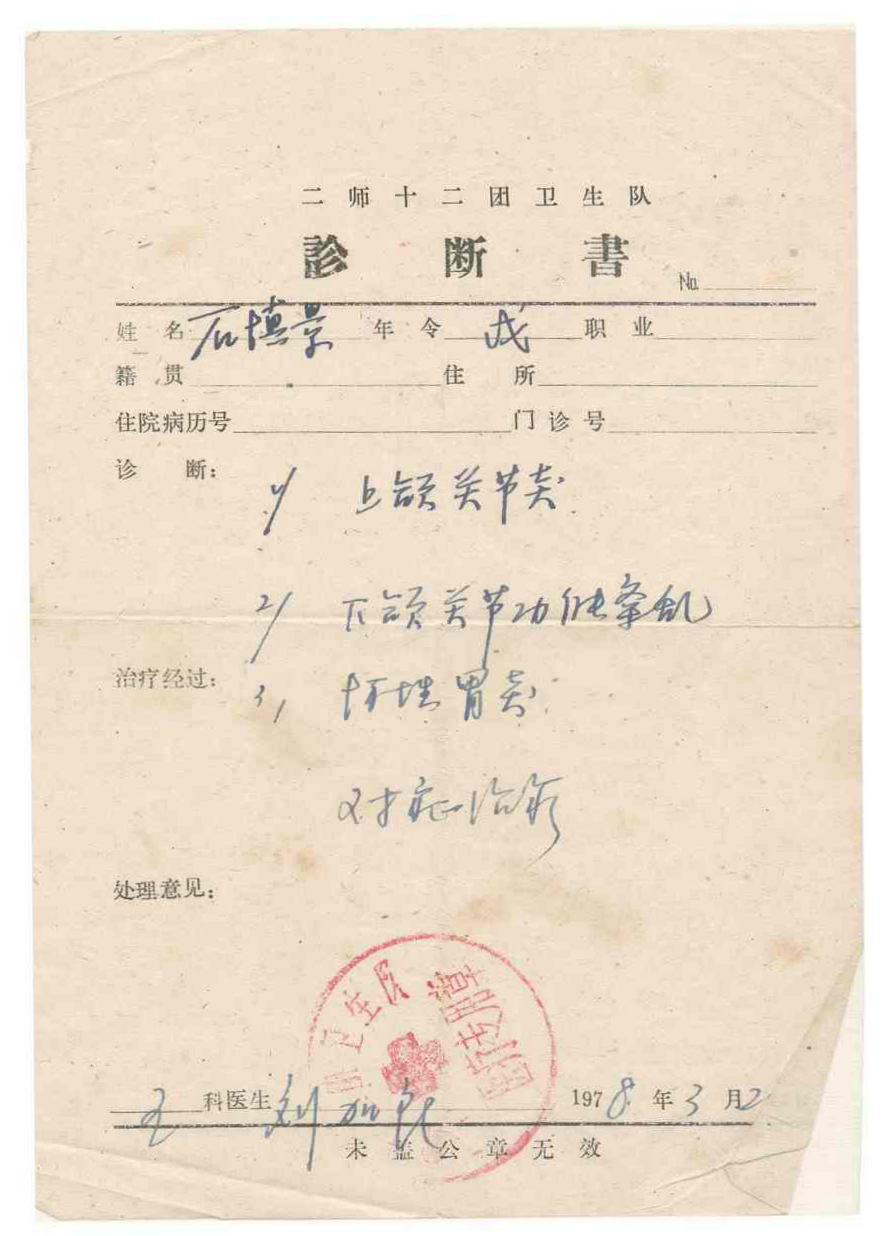 二师十二团卫生队
診断書
No.
姓名 石慎景 年令 成 职业
籍贯 住所
住院病历号 门诊号
诊断：
1/ 上颌关节炎
2/ 下颌关节功能紊乱
治疗经过：
3, 胃炎
对症治疗
处理意见：
卫生队
医疗专用章
科医生 刘 1978年3月2
未盖公章无效